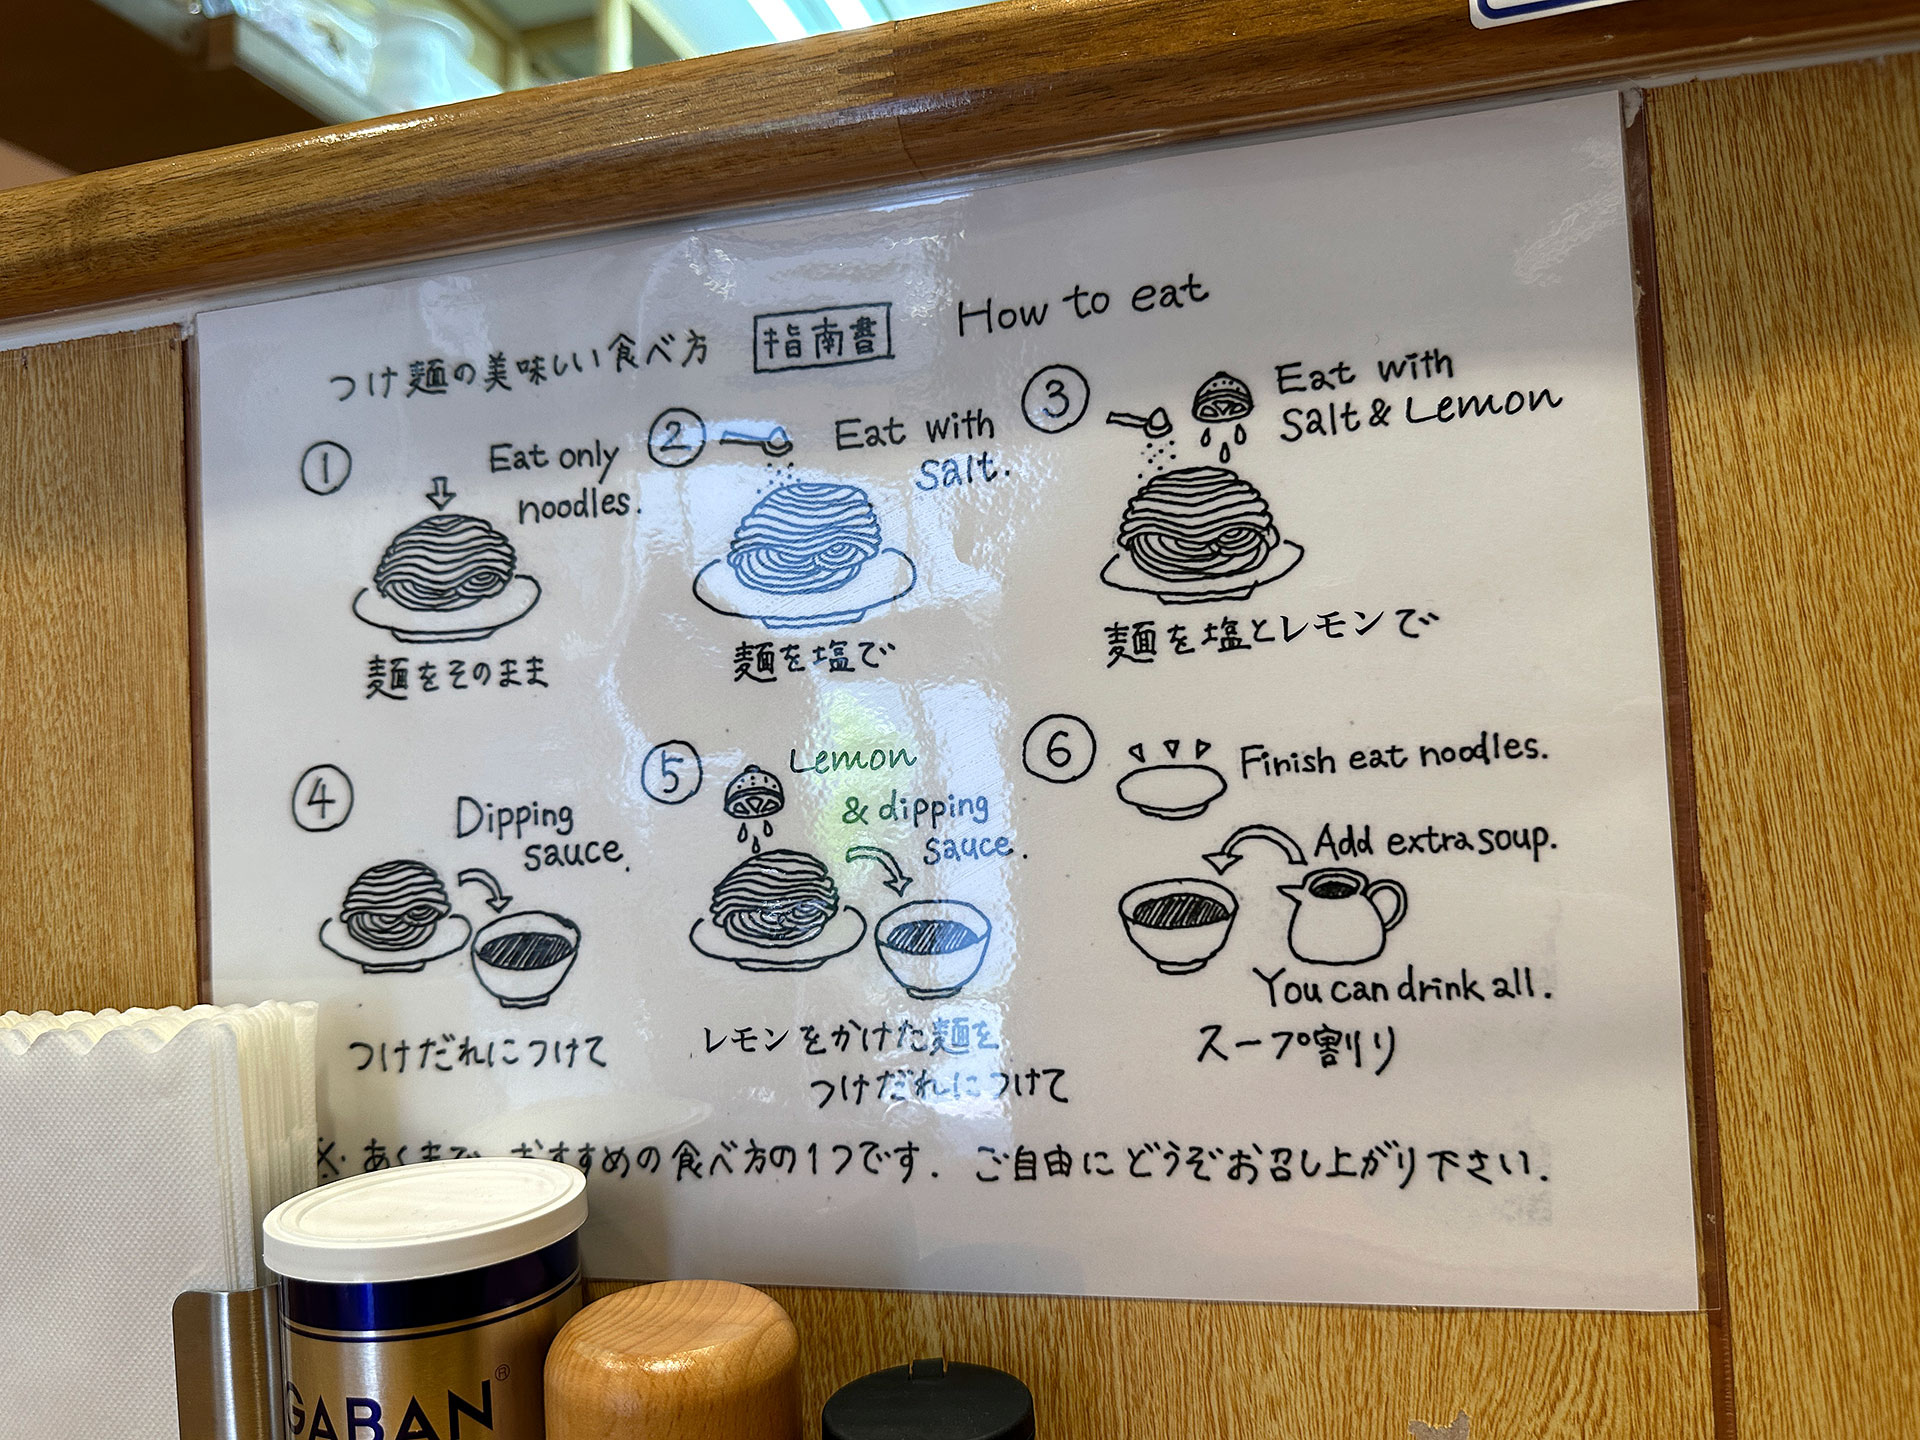 つけ麺の美味しい食べ方 指南書 How to eat
① Eat only
noodles.
麺をそのまま
② Eat with
salt.
麺を塩で
③ Eat with
Salt & Lemon
麺を塩とレモンで
④ Dipping
sauce.
つけだれにつけて
⑤ Lemon
& dipping
sauce.
レモンをかけた麺を
つけだれにつけて
⑥ Finish eat noodles.
Add extra soup.
You can drink all.
スープ割り
※あくまで、おすすめの食べ方の1つです. ご自由にどうぞお召し上がり下さい.
GABAN®